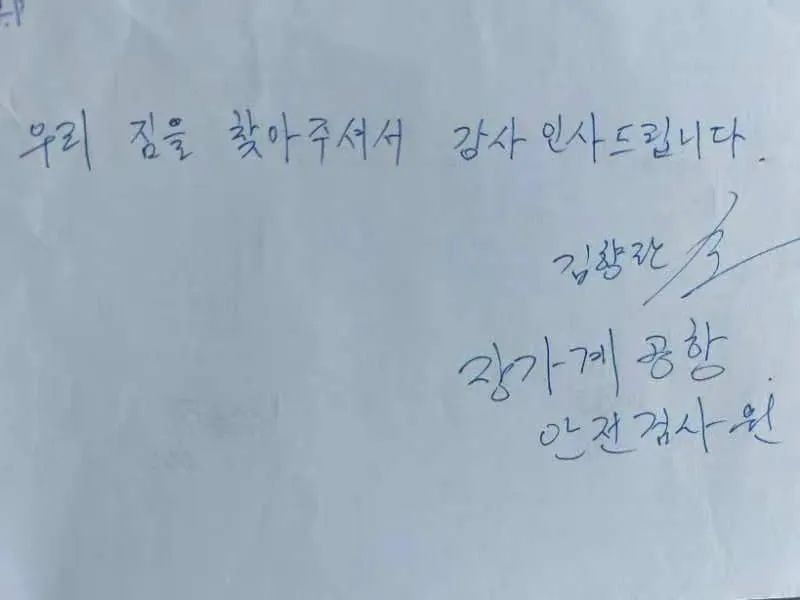 우리 짐을 찾아주셔서 감사 인사드립니다.
김향란
장가계 공항
안전검사원